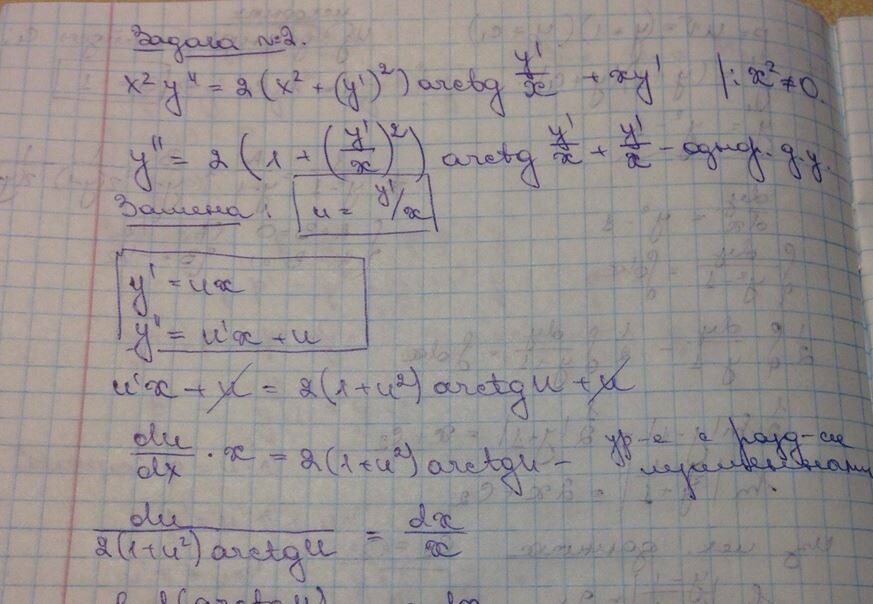 Задача №2.
x² y'' = 2(x² + (y')²) arctg y'/x + xy' |: x² ≠ 0.
y'' = 2(1 + (y'/x)²) arctg y'/x + y'/x - однор. д.у.
Замена: u = y'/x
y' = ux
y'' = u'x + u
u'x + u = 2(1+u²) arctg u + u
du/dx · x = 2(1+u²) arctg u - ур-е с разд-ся
переменными
du / 2(1+u²) arctg u = dx/x